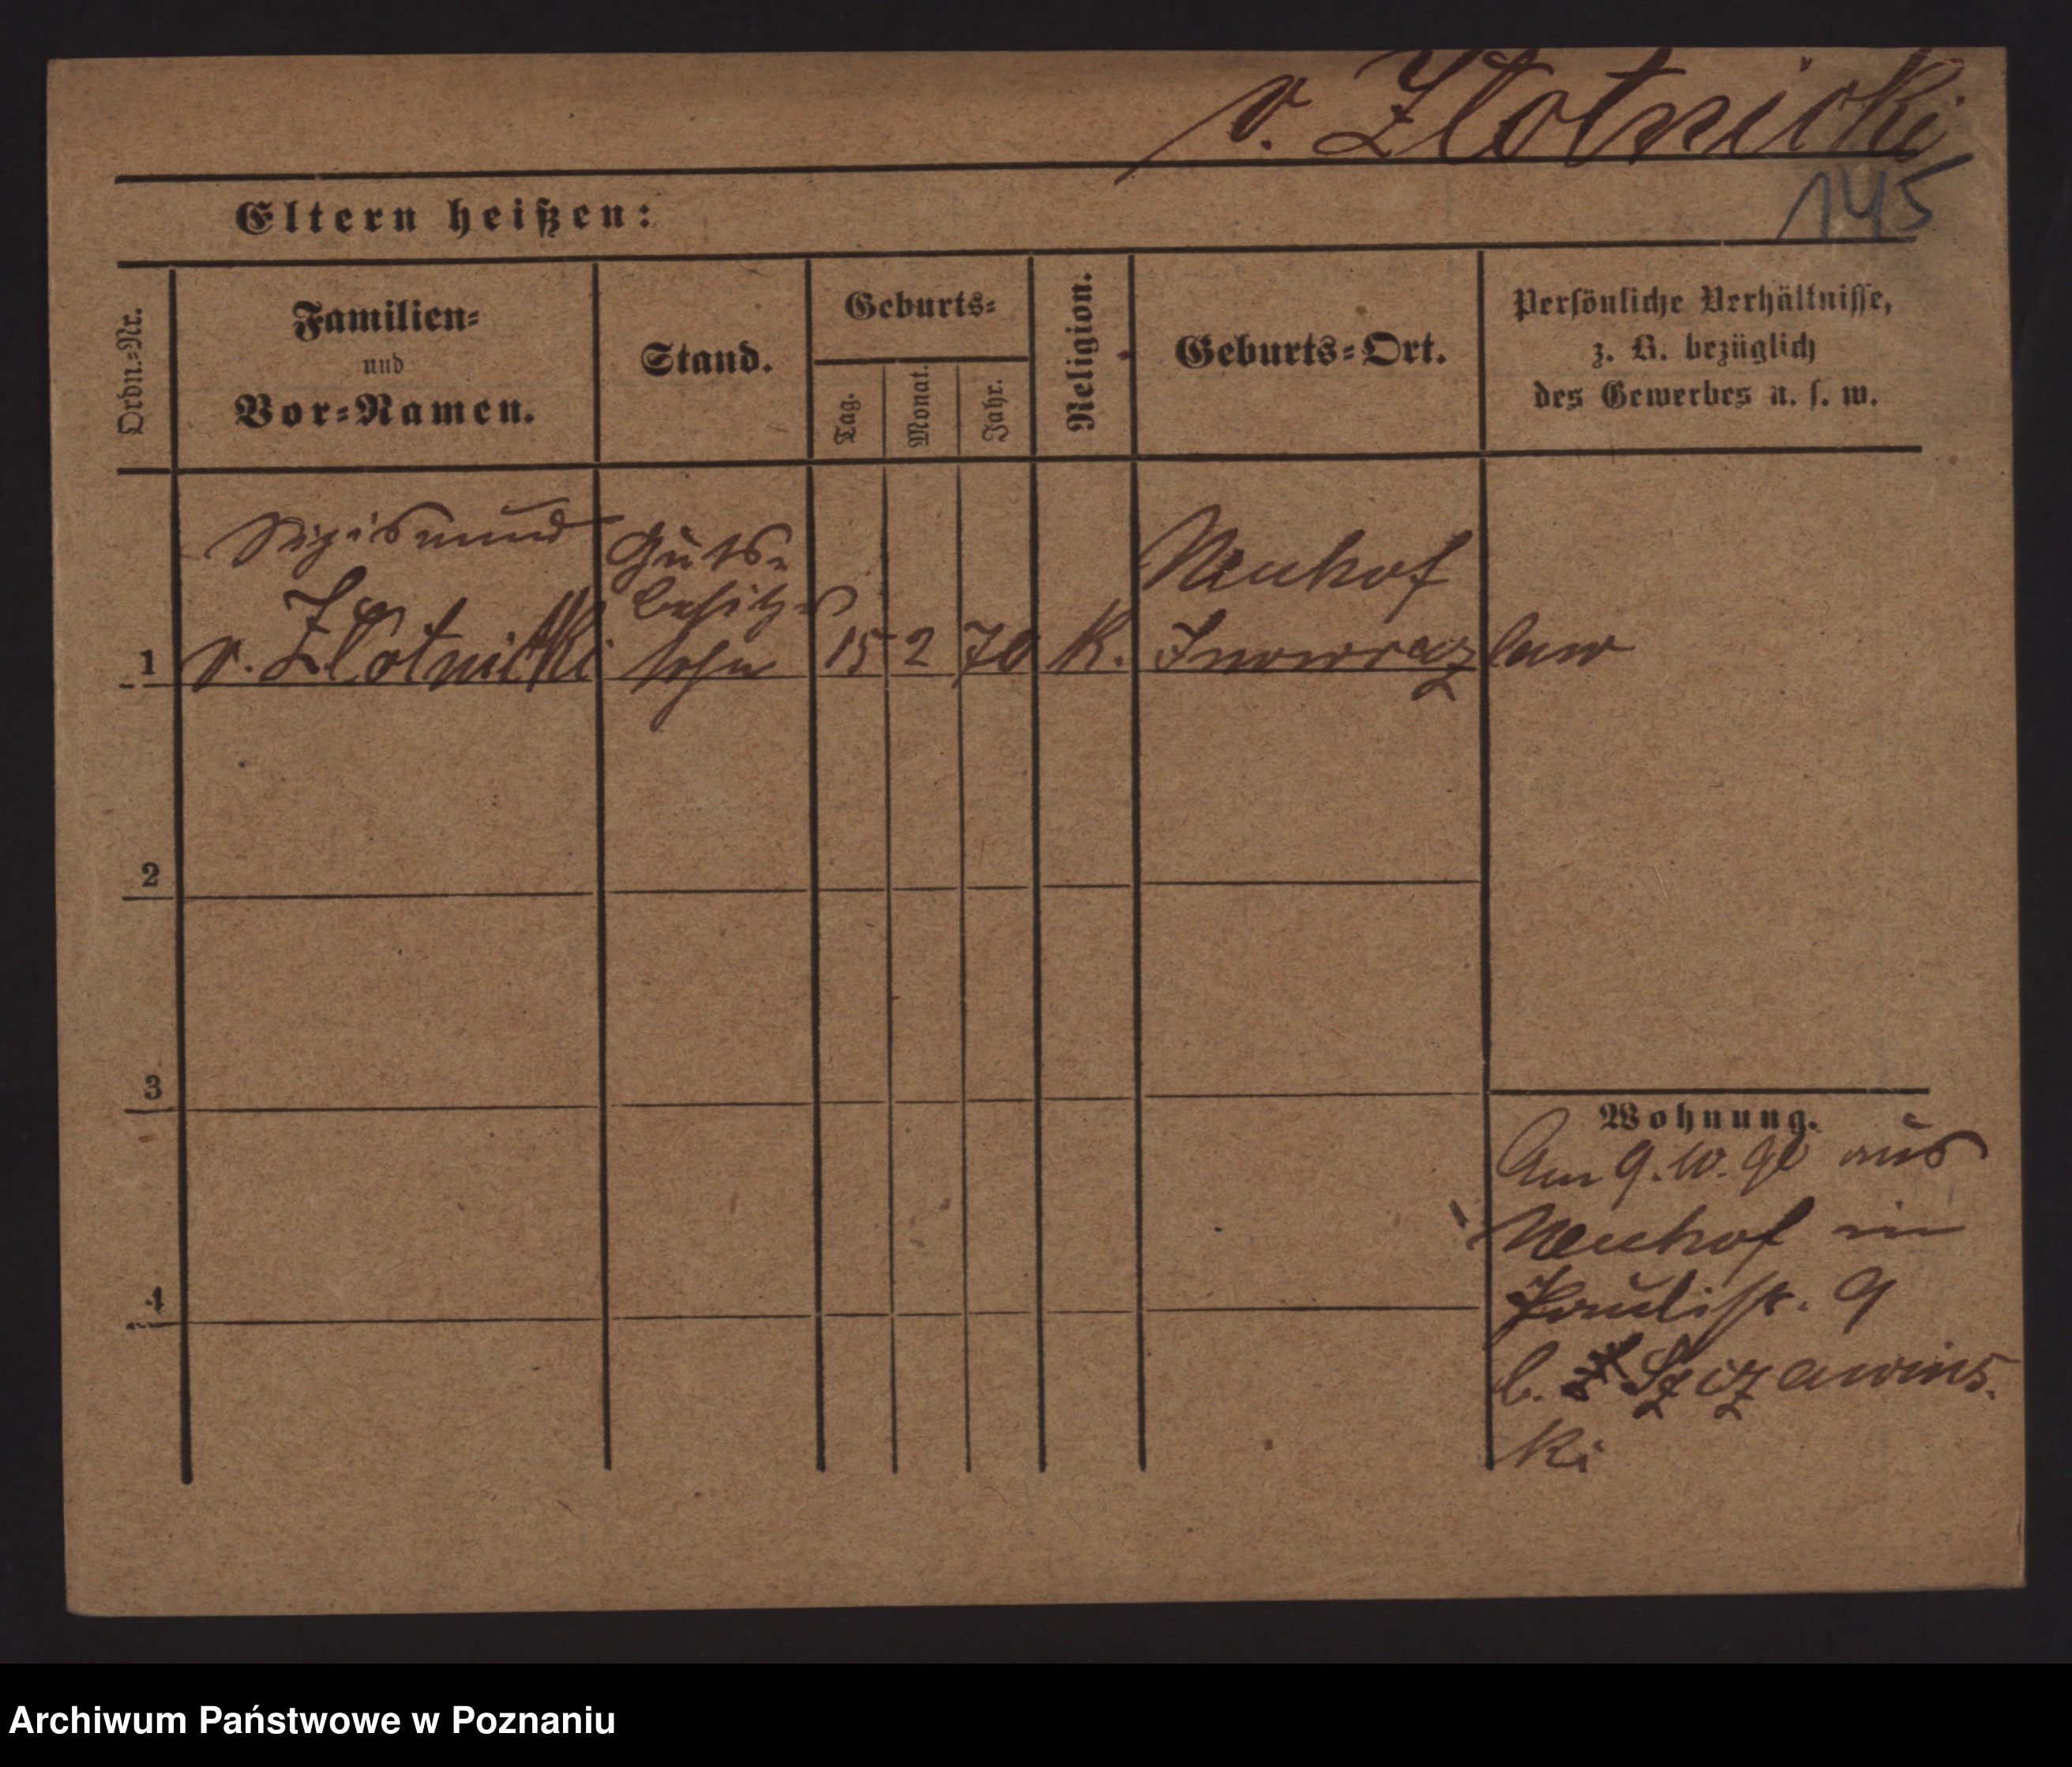 v. Zlotnicki
145
Eltern heißen:
Ordn.-Nr.
Familien-
und
Vor-Namen.
Stand.
Geburts-
Tag.
Monat.
Jahr.
Religion.
Geburts-Ort.
Persönliche Verhältnisse,
z. B. bezüglich
des Gewerbes u. s. w.
Sigismund
v. Zlotnicki
Guts-
besitzer
sohn
15 2 70 K.
Neuhof
Inowrazlaw
1
2
3
4
Wohnung.
Am 9. 10. 90 aus
Neuhof in
Paulist. 9
b. Szczawins-
ki
Archiwum Państwowe w Poznaniu